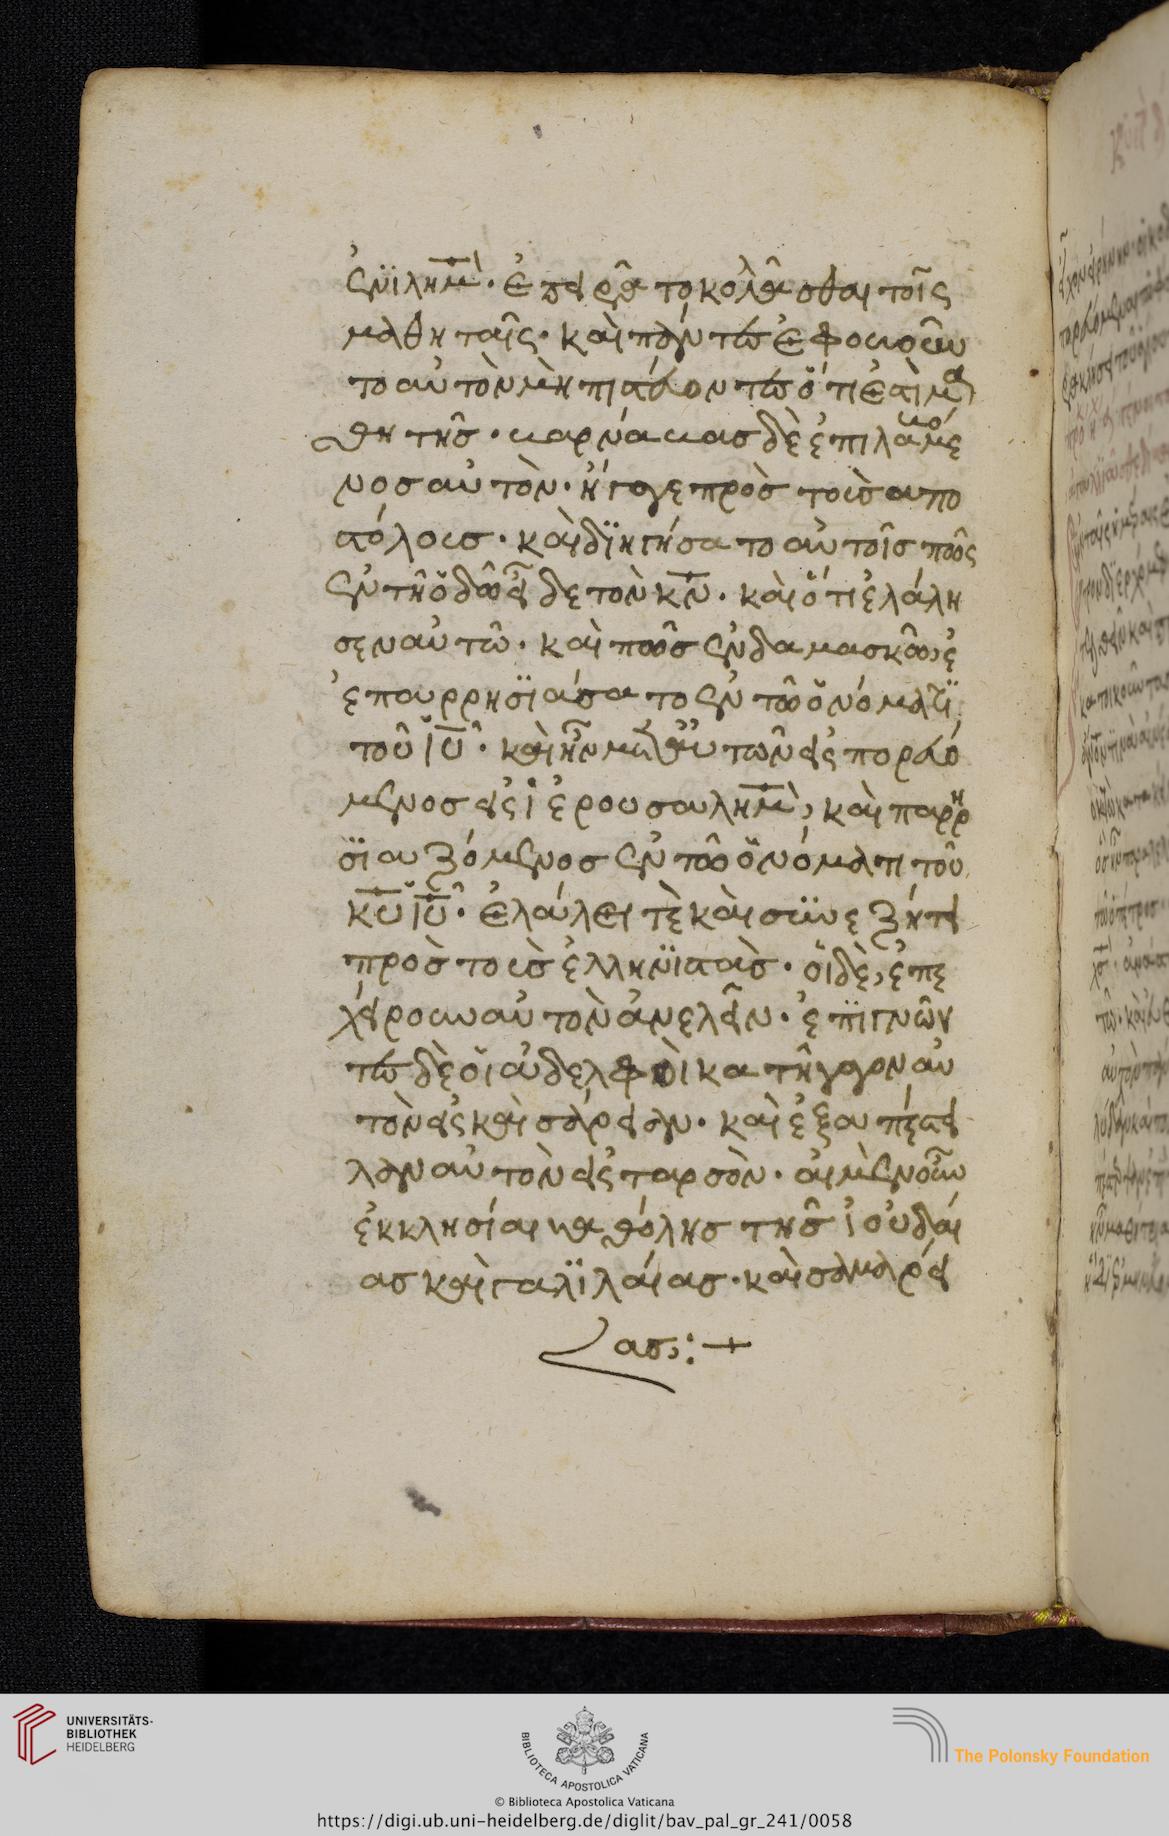 ἐν ϊλημ̅· ἐπειρᾶτο κολλᾶσθαι τοῖς
μαθηταῖς· καὶ πάντες ἐφοβοῦν
το αὐτὸν μὴ πιστεύοντες ὅτι ἐστὶ μα
θητής· βαρνάβας δὲ ἐπιλαβόμε
νος αὐτὸν· ἤγαγε πρὸς τοὺς ἀπο
στόλους· καὶ διηγήσατο αὐτοῖς πῶς
ἐν τῆ ὁδῶ εἶδε τὸν κν̅· καὶ ὅτι ἐλάλη
σεν αὐτῶ· καὶ πῶς ἐν δαμασκῶ, ἐ
ἐπαρρησϊάσατο ἐν τῶ ὀνόματϊ
τοῦ ιυ̅· καὶ ἦν μετ αὐτῶν εἰσπορευό
μενος εἰς ἱερουσαλημ̅, καὶ παρρη
σϊαζόμενος ἐν τῶ ὀνόματι τοῦ
κυ̅ ιυ̅· ἐλάλει τὲ καὶ συνεζήτει
πρὸς τοὺς ἑλληνϊστὰς· οἱ δὲ, ἐπε
χείρουν αὐτὸν ἀνελεῖν· ἐπϊγνόν
τες δὲ οἱ ἀδελφοὶ κατήγαγον αὐ
τὸν εἰς καισάρειαν· καὶ ἐξαπέστει
λαν αὐτὸν εἰς ταρσὸν· αἱ μὲν οὖν
ἐκκλησίαι καθόλης τῆς ἰουδαί
ας καὶ γαλϊλαίας· καὶ σαμαρεί
ας,:+
UNIVERSITÄTS-
BIBLIOTHEK
HEIDELBERG
BIBLIOTECA APOSTOLICA VATICANA
The Polonsky Foundation
© Biblioteca Apostolica Vaticana
https://digi.ub.uni-heidelberg.de/diglit/bav_pal_gr_241/0058